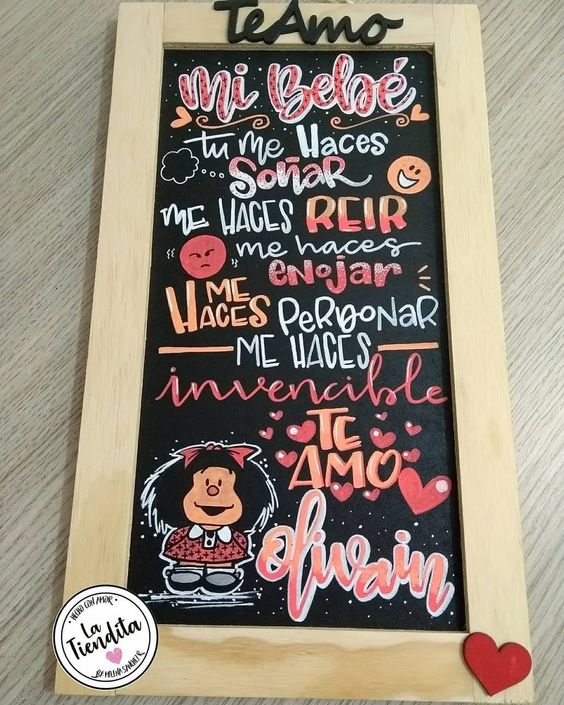 Te Amo
Mi Bebé
tu me Haces
Soñar
ME HACES REIR
me haces
enojar
ME
HACES PERDONAR
ME HACES
invencible
TE
AMO
Olivain
HECHO CON AMOR
La
Tiendita
BY MILENA SANCHEZ R.